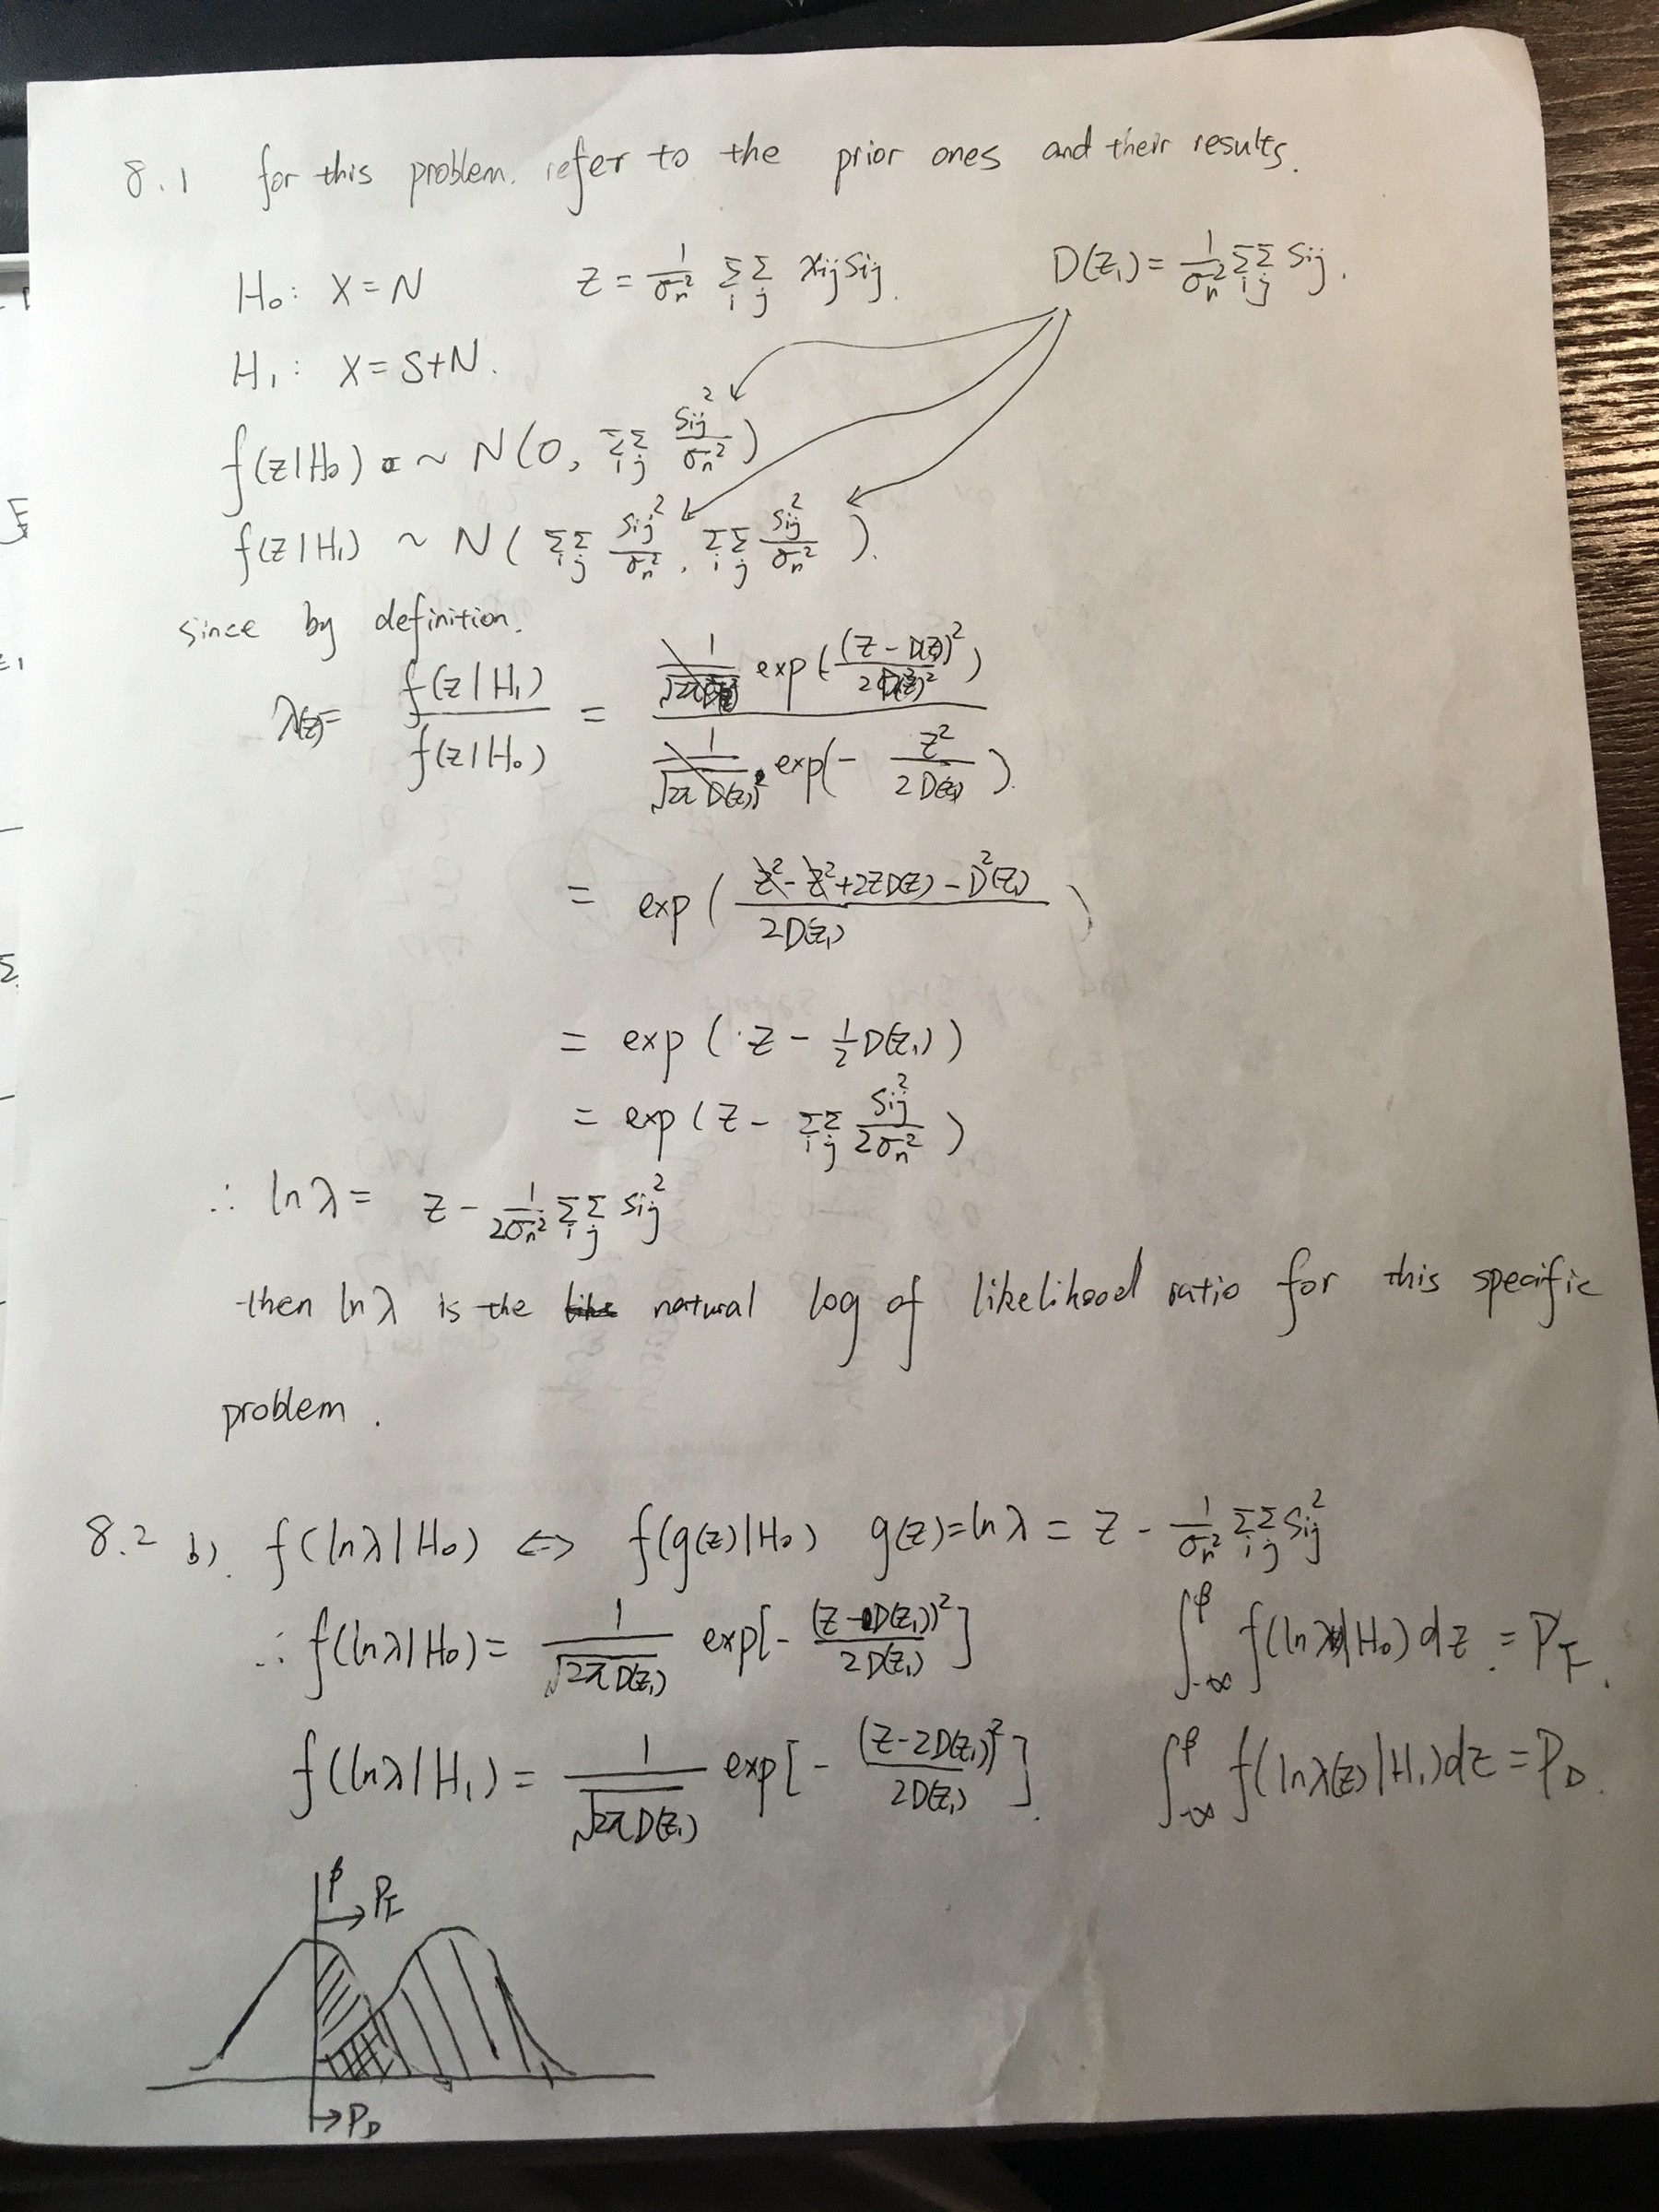 8.1 for this problem. refer to the prior ones and their results.
H₀: X = N    z = 1/σₙ² Σᵢ Σⱼ xᵢⱼ sᵢⱼ.    D(z₁) = 1/σₙ² Σᵢ Σⱼ sᵢⱼ.
H₁: X = S+N.
f(z|H₀) ~ N(0, Σᵢ Σⱼ sᵢⱼ²/σₙ²)
f(z|H₁) ~ N( Σᵢ Σⱼ sᵢⱼ²/σₙ², Σᵢ Σⱼ sᵢⱼ²/σₙ² ).
since by definition.
λ(z) = f(z|H₁) / f(z|H₀) = 1/√2π exp(-(z - D(z))²/2D(z)²) / 1/√2π D(z₁)² exp(- z²/2D(z₁)).
= exp( (z² - z² + 2zD(z) - D²(z₁)) / 2D(z₁) )
= exp( z - ½D(z₁) )
= exp( z - Σᵢ Σⱼ sᵢⱼ²/2σₙ² )
∴ ln λ = z - 1/2σₙ² Σᵢ Σⱼ sᵢⱼ²
then ln λ is the like natural log of likelihood ratio for this specific
problem.
8.2 b). f(lnλ|H₀) <=> f(g(z)|H₀) g(z) = lnλ = z - 1/σₙ² Σᵢ Σⱼ sᵢⱼ²
∴ f(lnλ|H₀) = 1/√2πD(z₁) exp[- (z - D(z₁))²/2D(z₁)]    ∫₋∞^β f(lnλ|H₀) dz = P_F.
f(lnλ|H₁) = 1/√2πD(z₁) exp[- (z - 2D(z₁))²/2D(z₁)].    ∫₋∞^β f(lnλ(z)|H₁) dz = P_D.
β → P_F
→ P_D